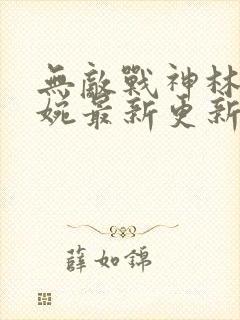 無敵戰神林
婉最新更新
薛如錦